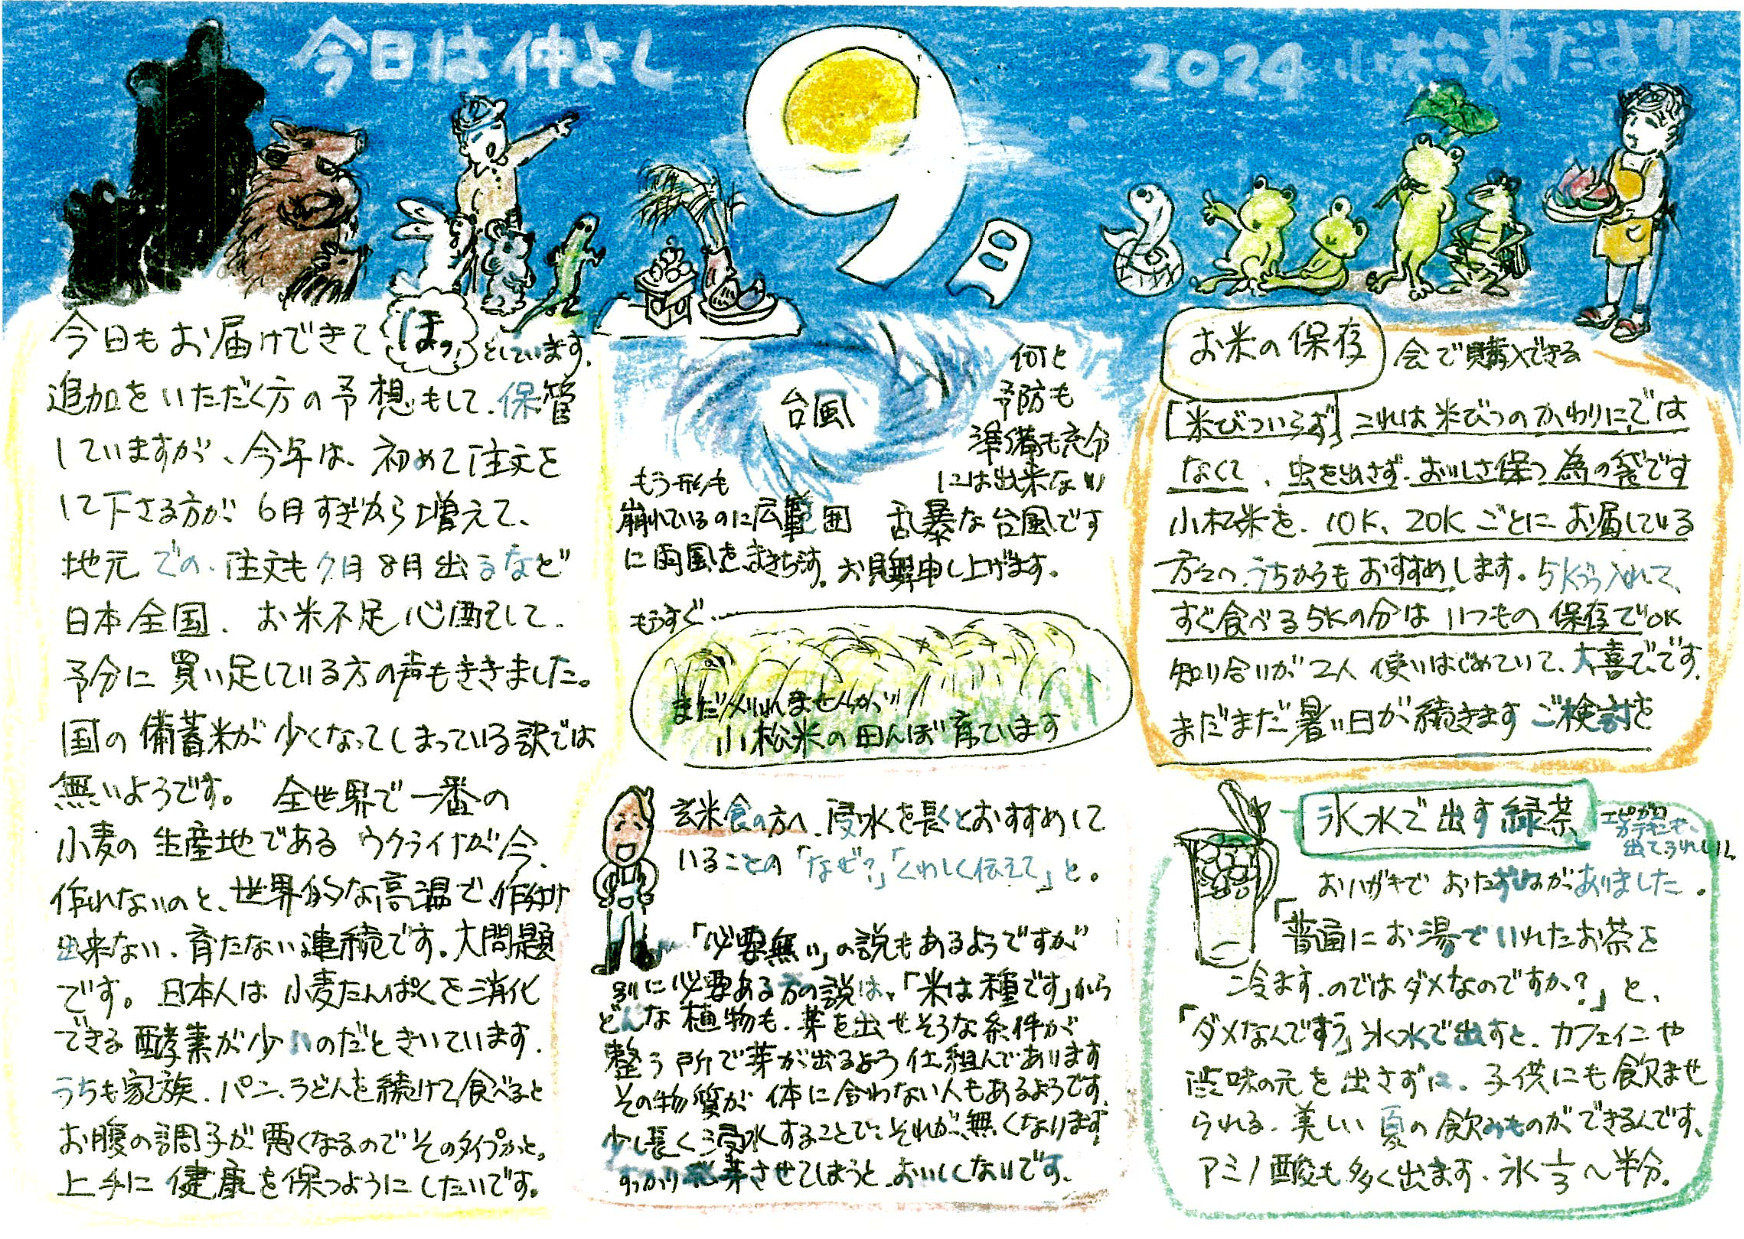 今日は仲よし
9月
2024 小松米だより
今日もお届けできて ほっ としています。
追加をいただく方の予想もして、保管
していますが、今年は、初めて注文を
して下さる方が 6月すぎから増えて、
地元での、注文も7月8月出るなど
日本全国、お米不足心配して、
予分に買い足している方の声もききました。
国の備蓄米が少くなってしまっている訳では
無いようです。 全世界で一番の
小麦の生産地であるウクライナが今、
作れないのと、世界的な高温で作付け
出来ない、育たない連続です。大問題
です。日本人は小麦たんぱくを消化
できる酵素が少いのだときいています。
うちも家族、パン、うどんを続けて食べると
お腹の調子が悪くなるのでそのタイプかと。
上手に健康を保つようにしたいです。
台風
何と
予防も
準備も充分
には出来ない
乱暴な台風です
お見舞申し上げます。
もう形も
崩れているのに広範囲
に雨風をまきちらす。
もうすぐ…
まだ刈れませんが、
小松米の田んぼ育ています
玄米食の方へ、浸水を長くとおすすめして
いることの「なぜ?」「くわしく伝えて」と。
「必要無い」の説もあるようですが
別に必要ある方の説は、「米は種です」から
どんな植物も、芽を出せそうな条件が
整う所で芽が出るよう仕組んであります
その物質が体に合わない人もあるようです。
少し長く浸水することで、それが、無くなります。
すっかり発芽させてしまうと、おいしくないです。
お米の保存
会で購入できる
[米びついらず] これは米びつのかわりに、では
なくて、虫を出さず、おいしさ保つ為の袋です
小松米を、10K、20Kごとにお届している
方々へ、うちからもおすすめします。5Kづつ入れて、
すぐ食べる5Kの分はいつもの保存でOK
知り合いが2人使いはじめていて、大喜びです。
まだまだ暑い日が続きます ご検討を
氷水で出す緑茶
出てうれしい。
おハガキでおたずねがありました。
「普通にお湯でいれたお茶を
冷ます。のではダメなのですか?」と、
「ダメなんですぅ」氷水で出すと、カフェインや
渋味の元を出さずに、子供にも飲ませ
られる、美しい夏の飲みものができるんです、
アミノ酸も多く出ます。氷1/3～半分。